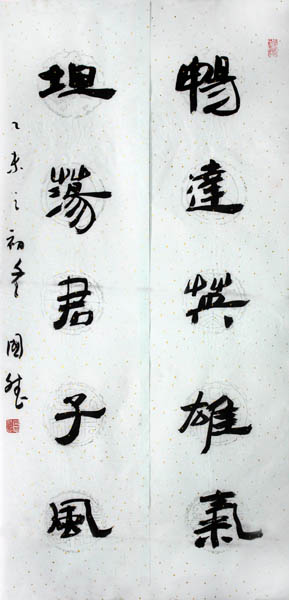 暢達英雄氣
坦蕩君子風
乙未之初冬國